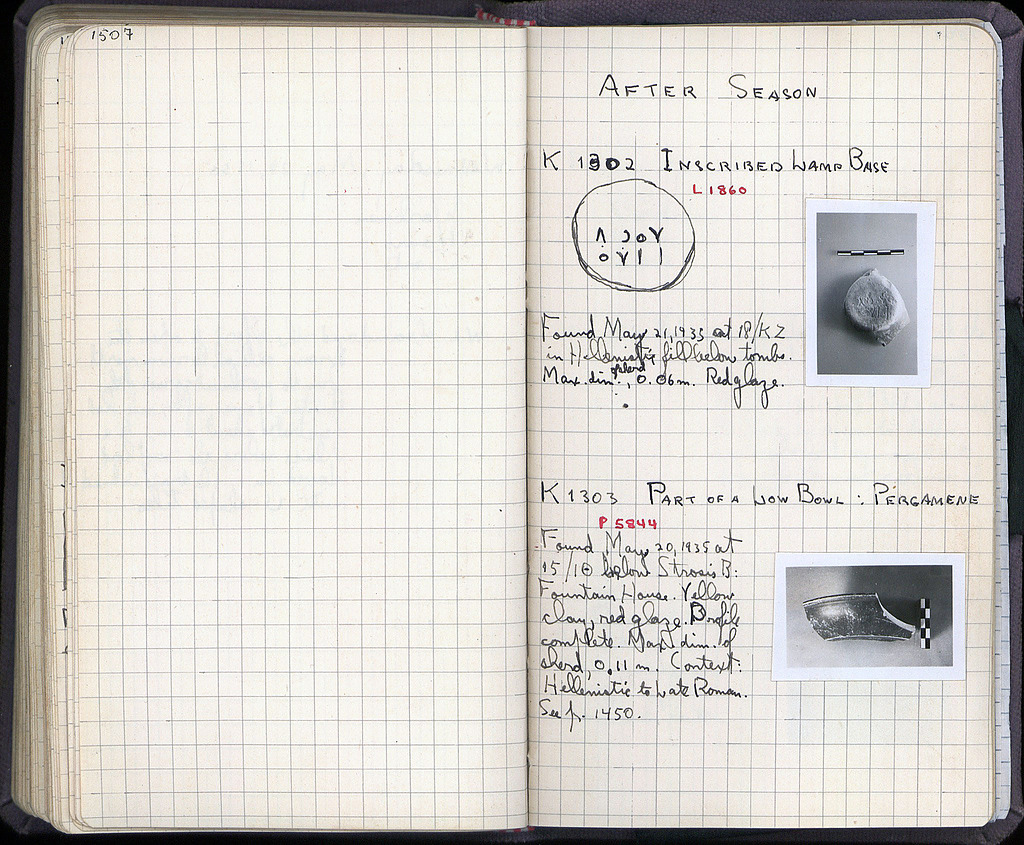 1507
AFTER SEASON
K 1302 INSCRIBED LAMP BASE
L 1860
Found May 21, 1935 at 18/KZ
in Hellenistic fill below tombs.
Max. dim. of sherd, 0.06 m. Red glaze.
K 1303 PART OF A LOW BOWL : PERGAMENE
P 5844
Found May 20, 1935 at
15/ΙΘ below Strosis B:
Fountain House. Yellow
clay, red glaze. Profile
complete. Max. dim. of
sherd, 0.11 m. Context:
Hellenistic to Late Roman.
See p. 1450.